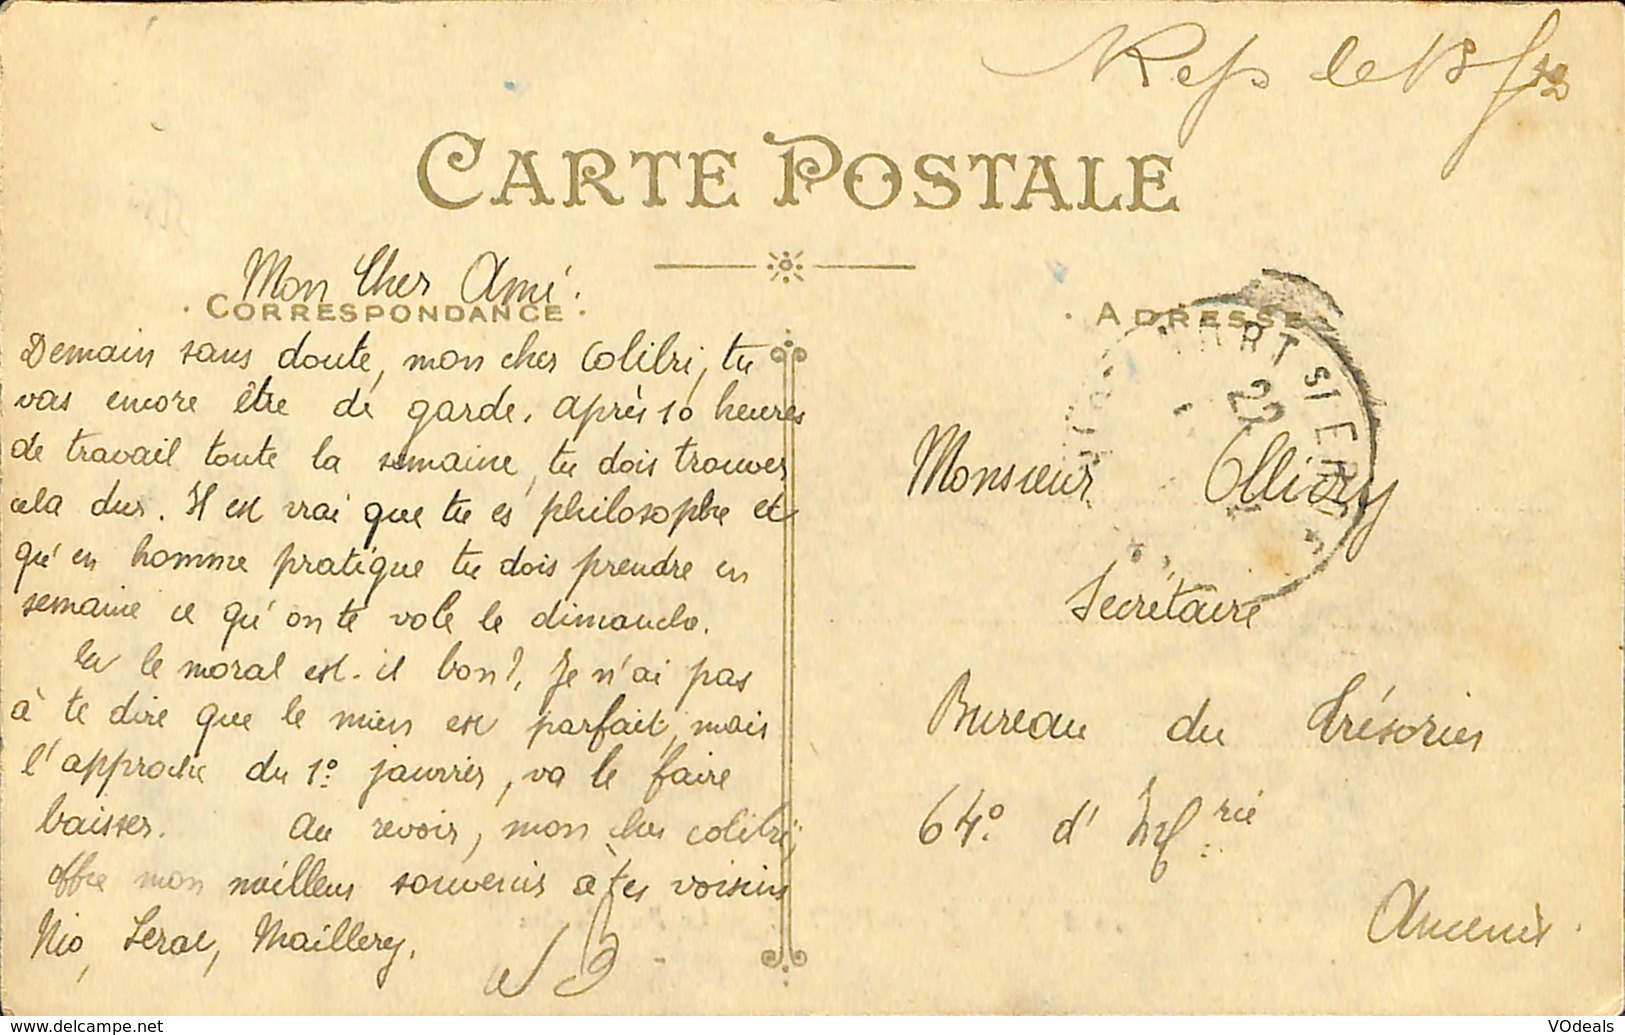 Rep le 18
CARTE POSTALE
Mon Cher Ami.
CORRESPONDANCE
Demain sans doute, mon cher Colibri, tu
vas encore être de garde. après 10 heures
de travail toute la semaine, tu dois trouver
cela dur. Il est vrai que tu es philosophe et
qu'en homme pratique tu dois prendre en
semaine ce qu'on te vole le dimanche.
Et le moral est-il bon?, Je n'ai pas
à te dire que le mien est parfait, mais
l'approche du 1º janvier, va le faire
baisser. Au revoir, mon cher colibri,
offre mon meilleur souvenir à tes voisins
Nio, Serac, Maillery.
ADRESSE
22
Monsieur Ollivry
Secrétaire
Bureau du Trésorier
64º d'Inf.rie
Ancenis.
© delcampe.net
VOdeals